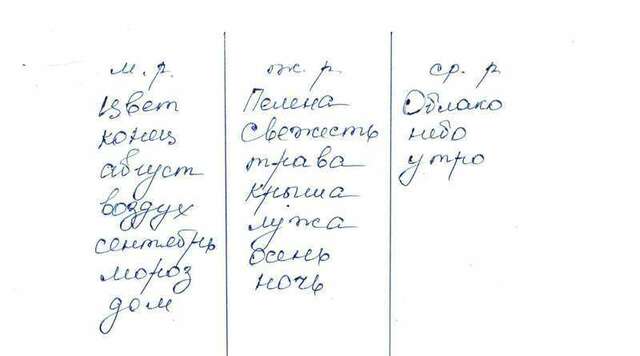 м. р.
Цвет
конец
август
воздух
сентябрь
мороз
дом
ж. р.
Пелена
Свежесть
трава
крыша
лужа
осень
ночь
ср. р
Облако
небо
утро